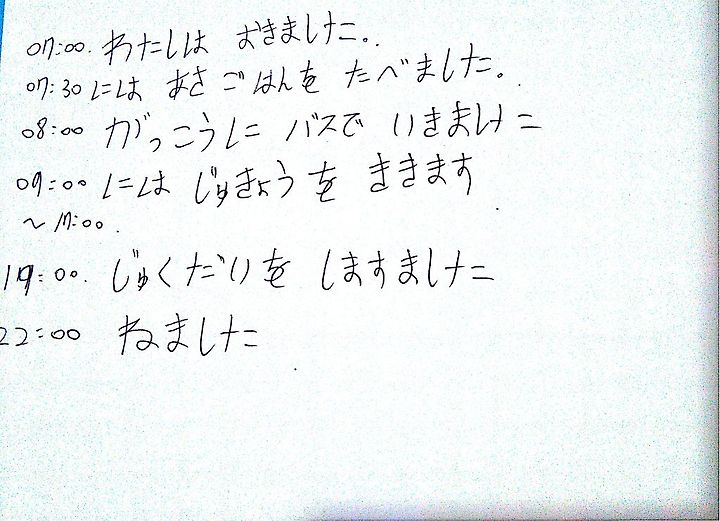 07:00. わたしは おきました。
07:30 には あさごはんを たべました。
08:00 がっこうに バスで いきました
09:00 には じゅきょうを ききます
~ 17:00.
19:00. じゅくだいを しますました
22:00 ねました